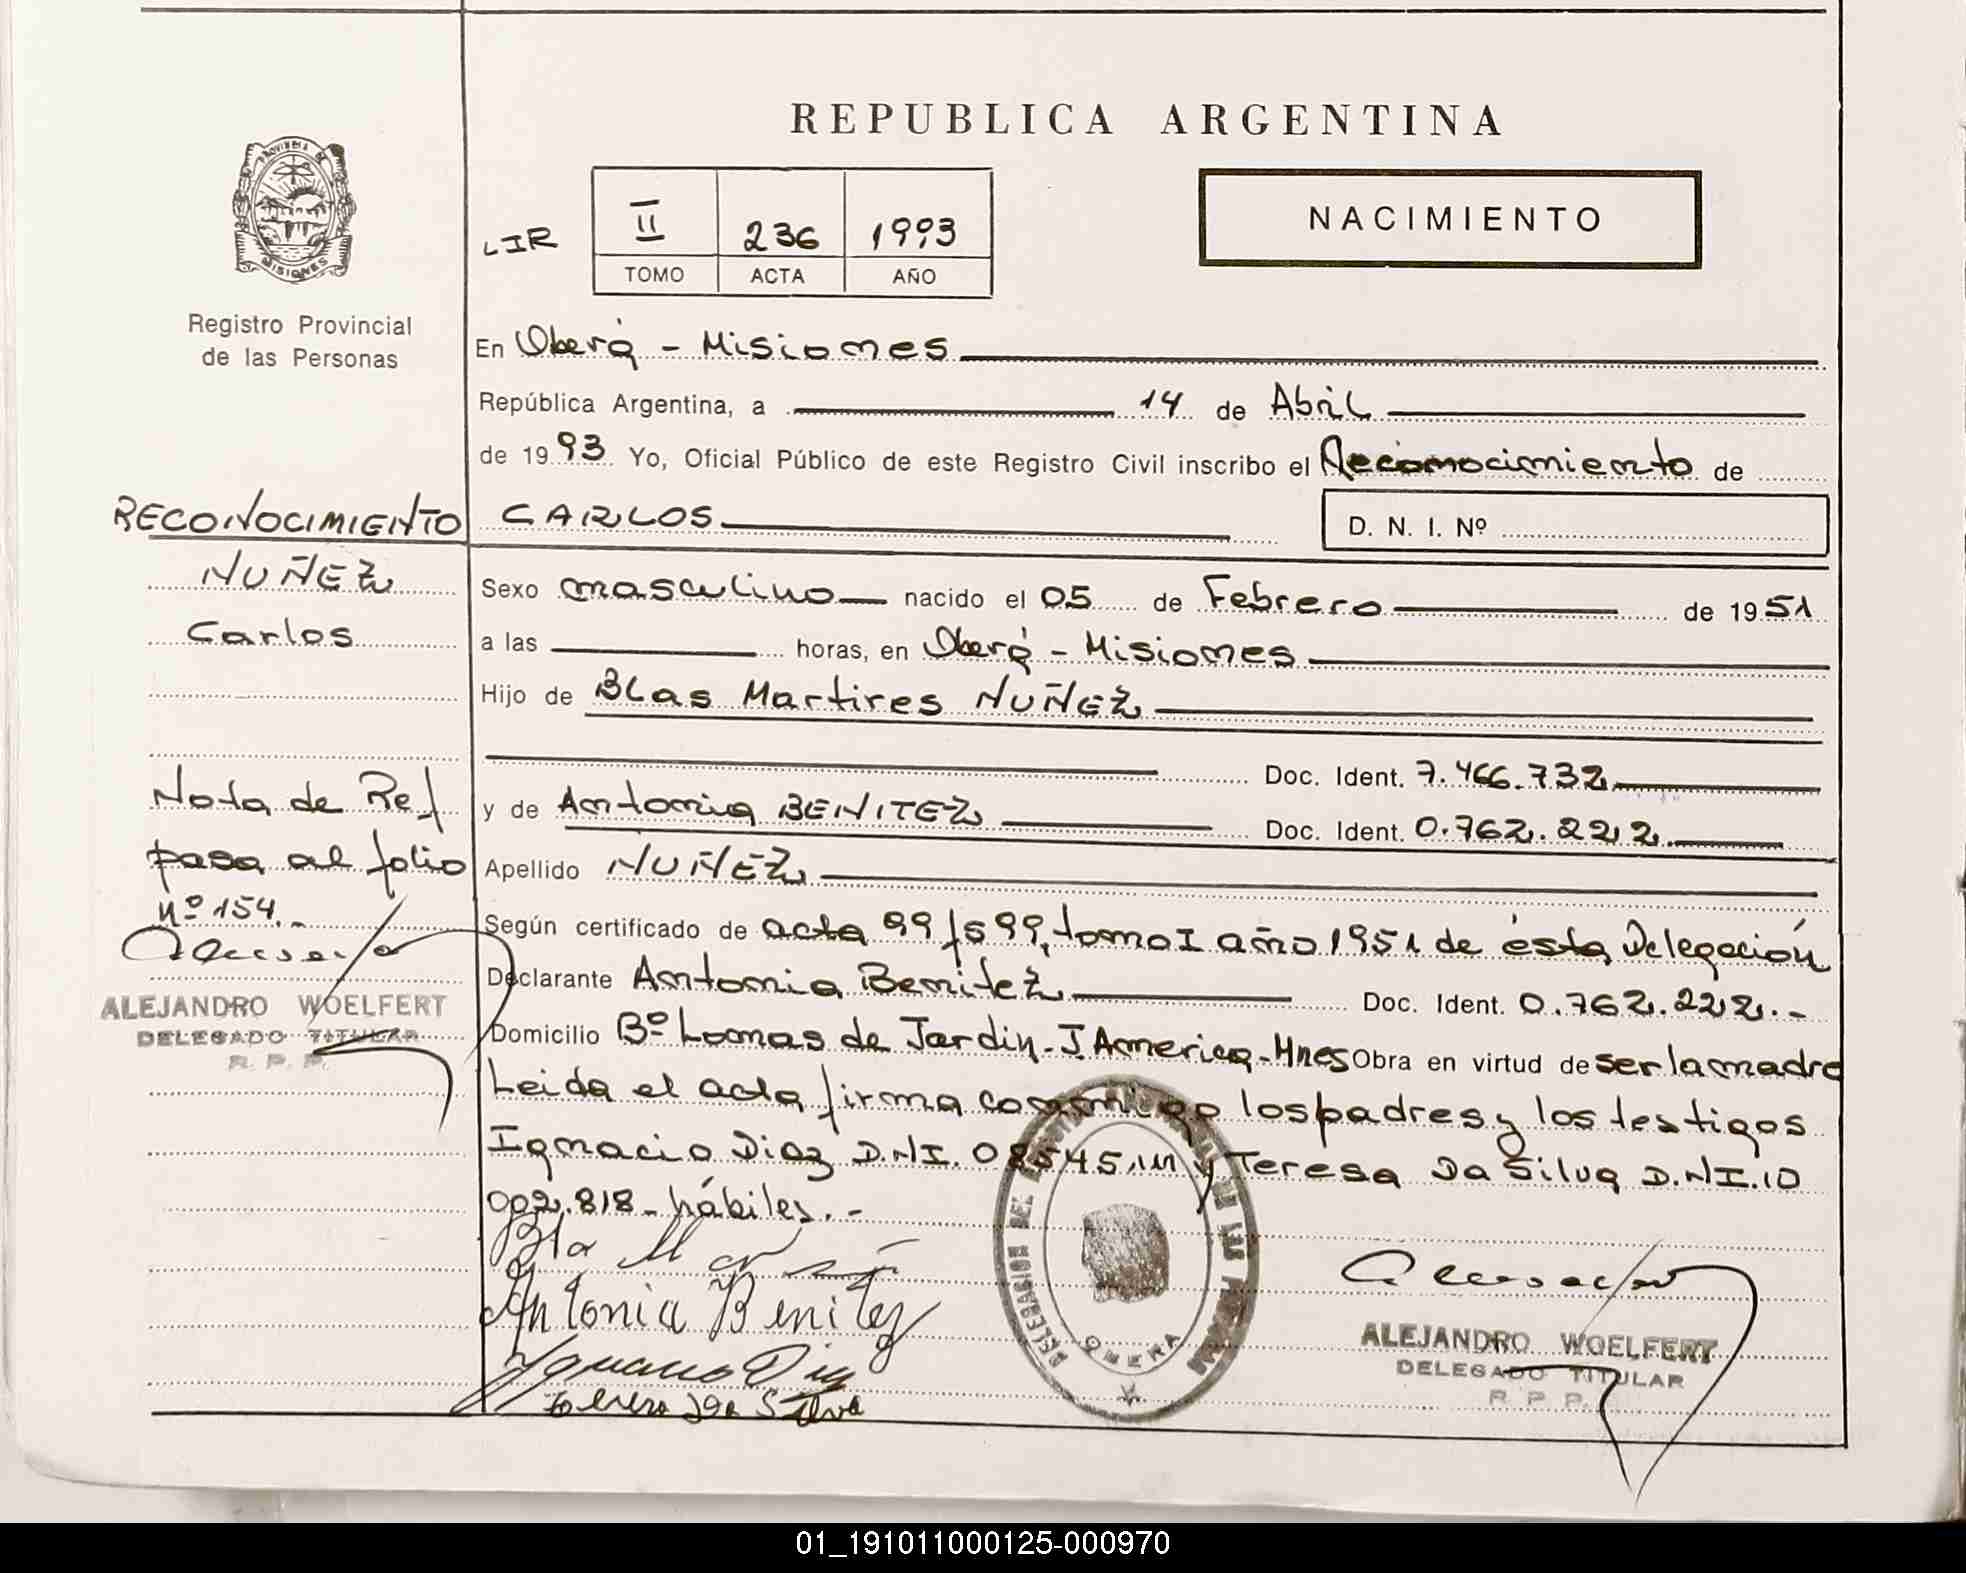 REPUBLICA ARGENTINA
PROVINCIA DE
MISIONES
Registro Provincial
de las Personas
LIR
II 236 1993
TOMO ACTA AÑO
NACIMIENTO
En Oberá - Misiones
República Argentina, a 14 de Abril
de 1993 Yo, Oficial Público de este Registro Civil inscribo el Reconocimiento de
CARLOS
D. N. I. Nº
Sexo masculino nacido el 05 de Febrero de 1951
a las horas, en Oberá - Misiones
Hijo de Blas Martires NUÑEZ
Doc. Ident. 7.466.732
y de Antonia BENITEZ Doc. Ident. 0.762.222
Apellido NUÑEZ
Según certificado de acta 99 fs 99, tomo I año 1951 de ésta Delegación
Declarante Antonia Benitez Doc. Ident. 0.762.222.-
Domicilio Bº Lomas de Jardin - J. America - Mnes Obra en virtud de ser la madre
Leida el acta firma conmigo los padres y los testigos
Ignacio Diaz D.N.I. y Teresa Da Silva D.N.I. 10
002.818 - hábiles.-
Antonia Benitez
Ignacio Diaz
Da Silva
DELEGACION DEL
DE LAS
OBERA
ALEJANDRO WOELFERT
DELEGADO TITULAR
R. P. P.
RECONOCIMIENTO
NUÑEZ
Carlos
Nota de Ref
pasa al folio
Nº 154.-
ALEJANDRO WOELFERT
DELEGADO TITULAR
R. P. P.
01_191011000125-000970